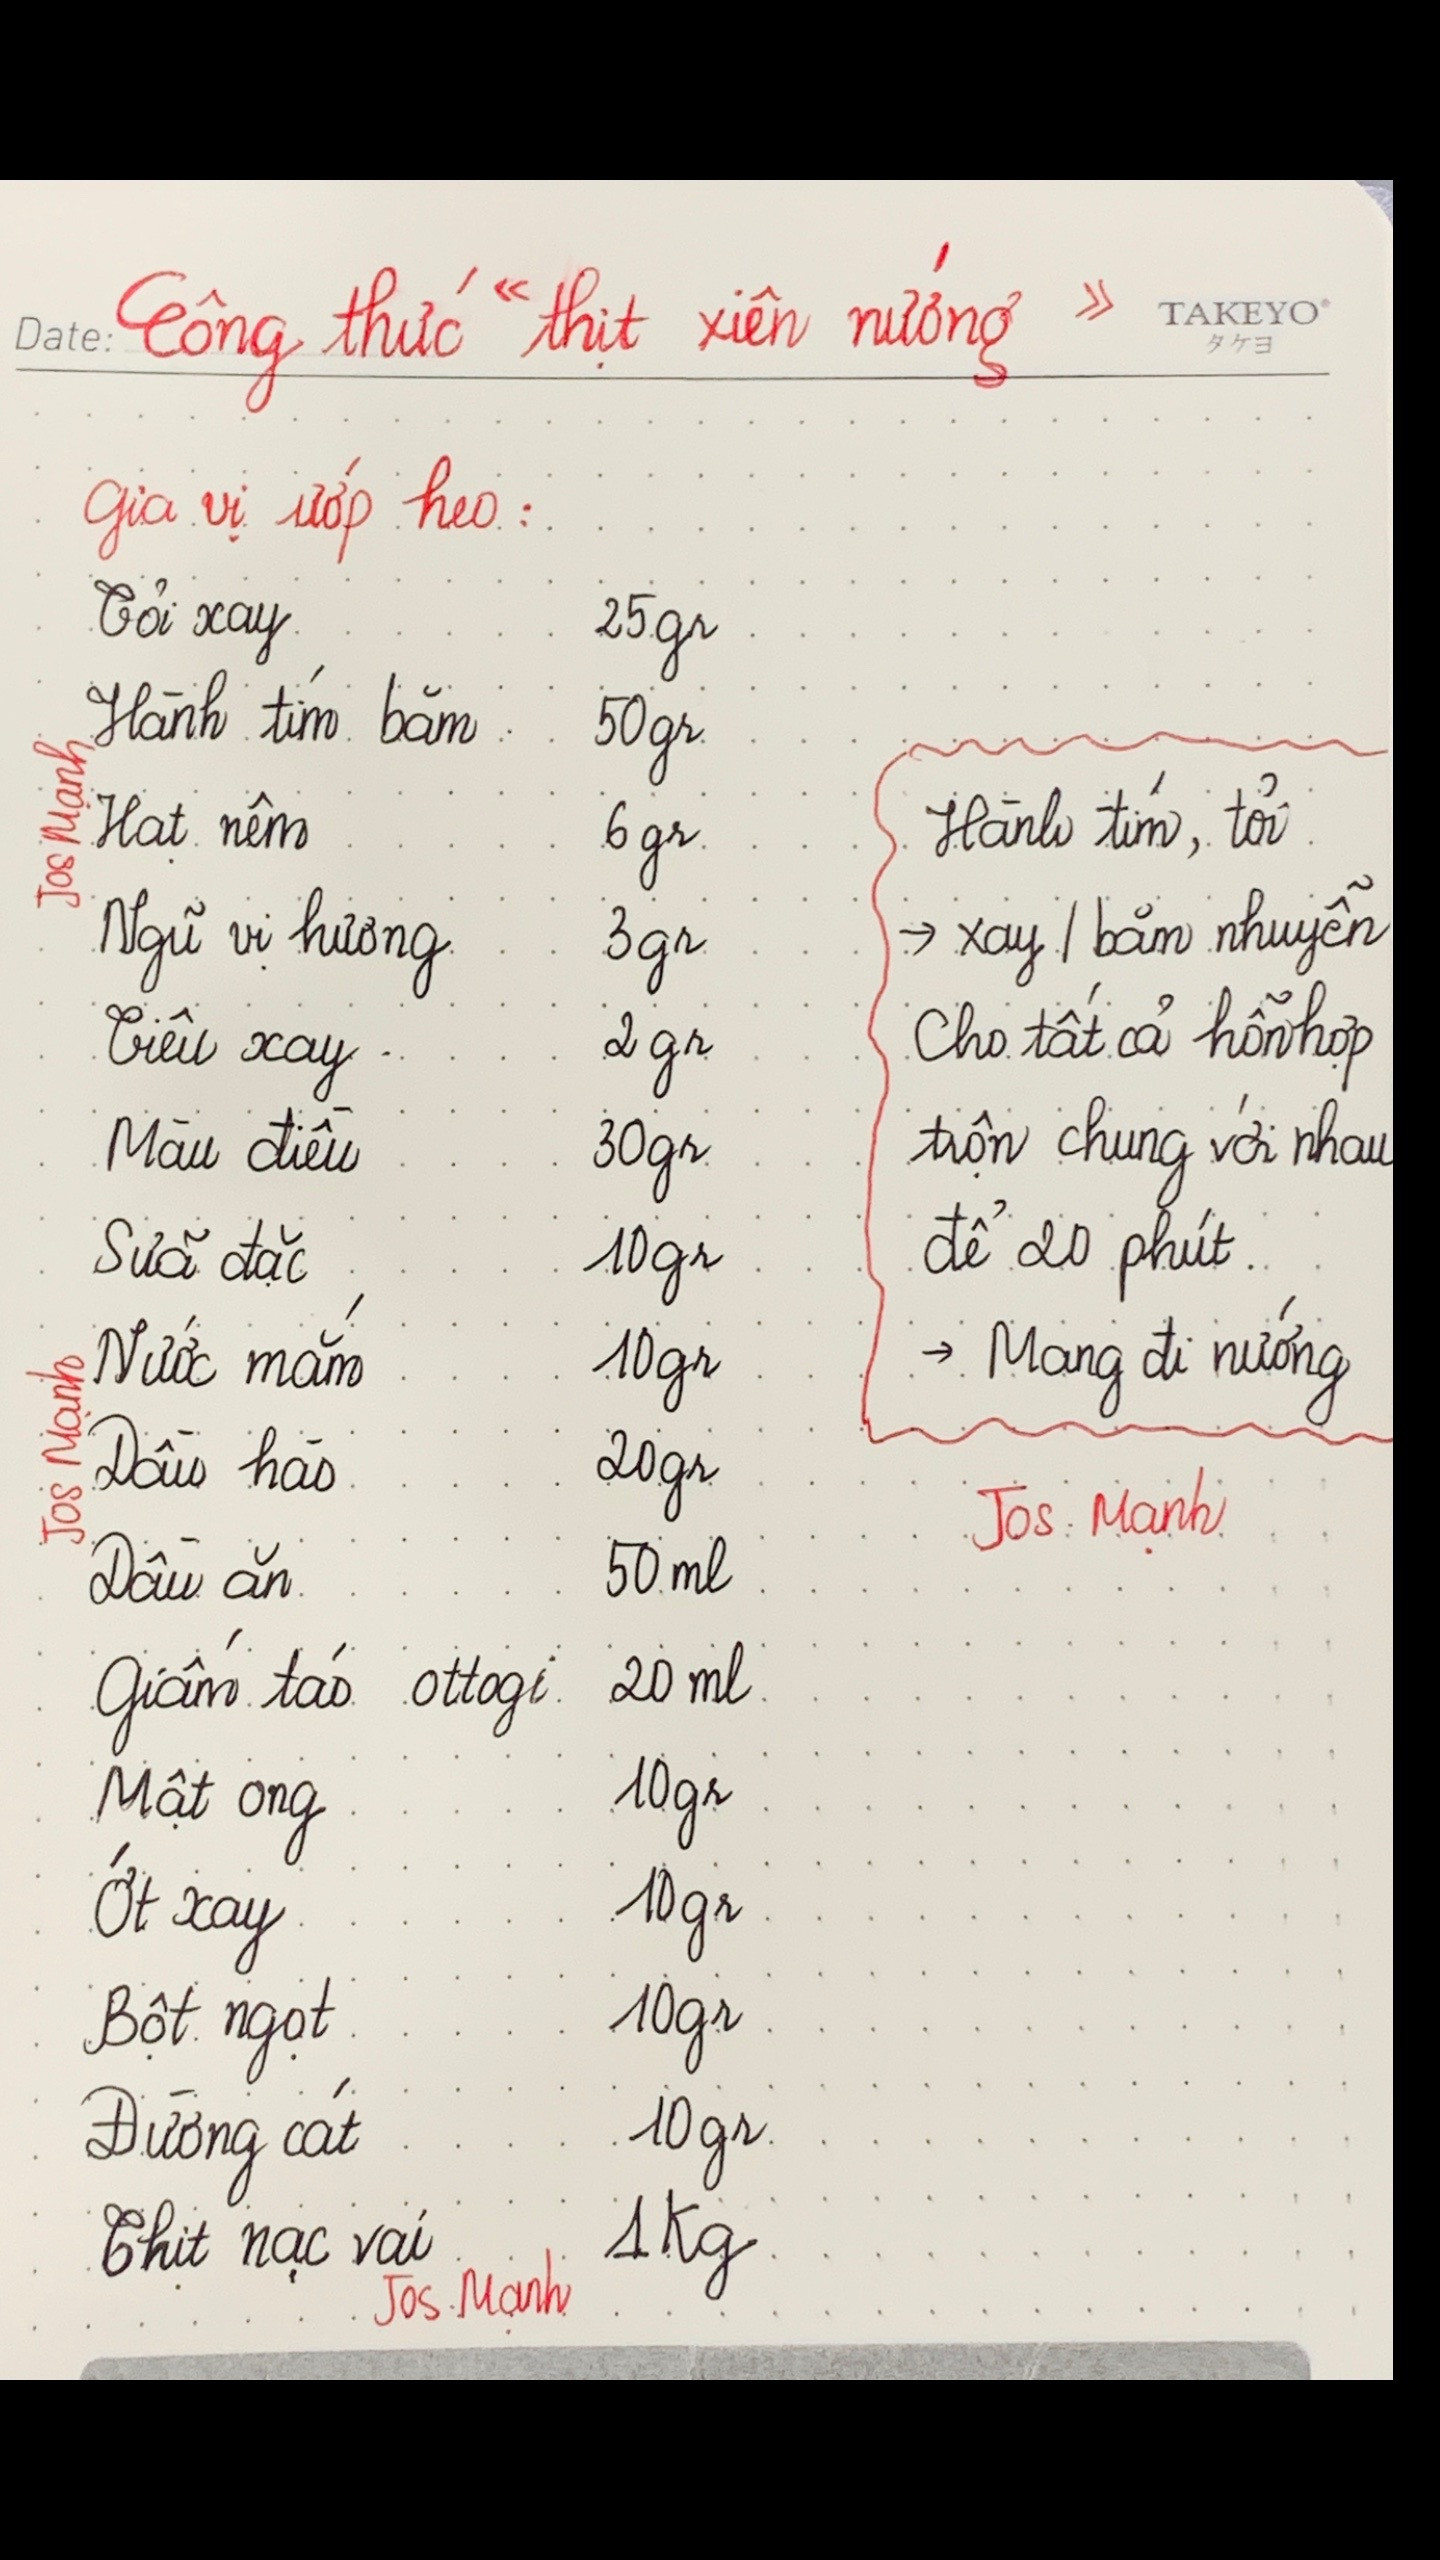 Date: Công thức "thịt xiên nướng" TAKEYO®
タケヨ
Gia vị ướp heo:
Tỏi xay 25gr
Hành tím băm 50gr
Hạt nêm 6gr
Ngũ vị hương 3gr
Tiêu xay 2gr
Màu điều 30gr
Sữa đặc 10gr
Nước mắm 10gr
Dầu hào 20gr
Dầu ăn 50ml
Giấm táo ottogi 20ml
Mật ong 10gr
Ớt xay 10gr
Bột ngọt 10gr
Đường cát 10gr
Thịt nạc vai 1Kg
Jos Mạnh
Jos Mạnh
Jos Mạnh
Hành tím, tỏi
→ xay / băm nhuyễn
Cho tất cả hỗn hợp
trộn chung với nhau
để 20 phút.
→ Mang đi nướng
Jos Mạnh